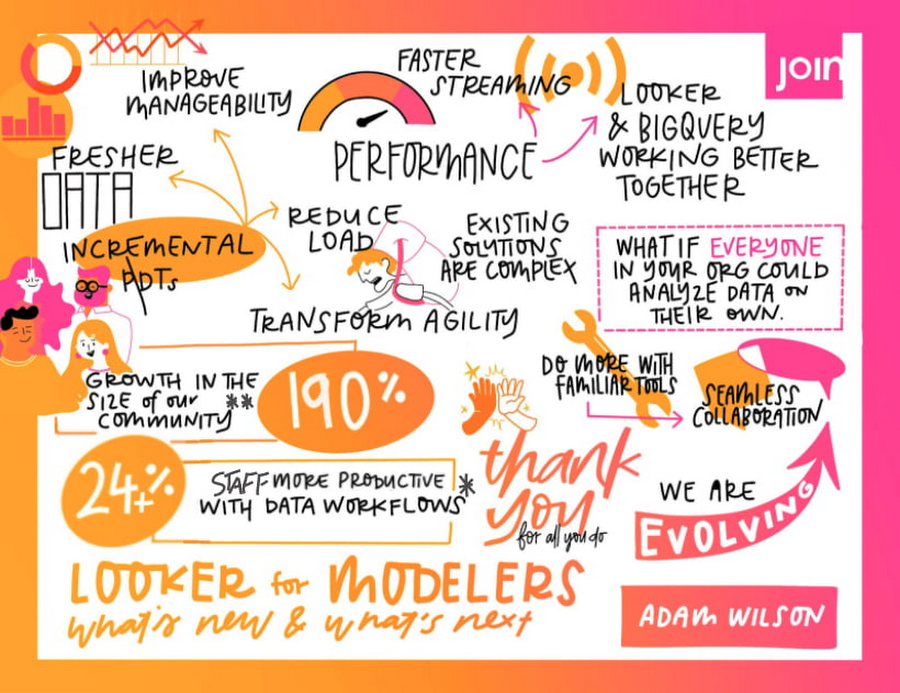 JOIN
IMPROVE
MANAGEABILITY
FASTER
STREAMING
LOOKER
& BIGQUERY
WORKING BETTER
TOGETHER
PERFORMANCE
FRESHER
DATA
INCREMENTAL
PDTs
REDUCE
LOAD
EXISTING
SOLUTIONS
ARE COMPLEX
TRANSFORM AGILITY
WHAT IF EVERYONE
IN YOUR ORG COULD
ANALYZE DATA ON
THEIR OWN.
GROWTH IN THE
SIZE of our
COMMUNITY **
190%
DO MORE WITH
FAMILIAR TOOLS
SEAMLESS
COLLABORATION
24+%
STAFF MORE PRODUCTIVE *
WITH DATA WORKFLOWS
thank
you
for all you do
WE ARE
EVOLVING
LOOKER for MODELERS
what's new & what's next
ADAM WILSON